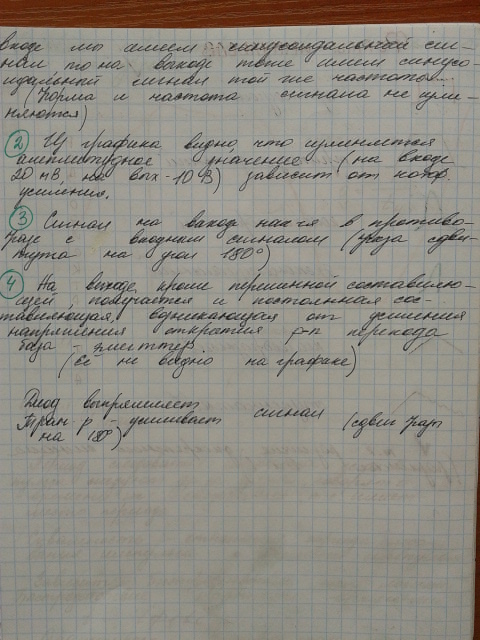 входе мы имеем синусоидальный сиг-
нал то на выходе тоже имеем синусо-
идальный сигнал той же частоты...
(Форма и частота сигнала не изме-
няются)
2 Из графика видно, что изменяется
амплитудное значение (на входе
20 мВ на вых - 10 В) зависит от коэф.
усиления.
3 Сигнал на выходе нах-ся в противо-
фазе с входным сигналом (фаза сдви-
нута на угол 180°)
4 На выходе, кроме переменной составляю-
щей, получается и постоянная сос-
тавляющая, возникающая от усиления
напряжения открытия p-n перехода
база - эмиттер
(Её не видно на графике)
Диод выпрямляет
Тран-р - усиливает сигнал (сдвиг фазы
на 180°)